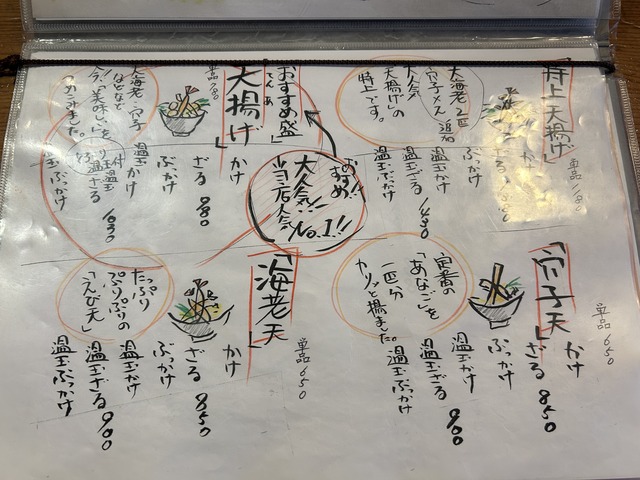 「特上天揚げ」
単品
大海老2匹
穴子〆ス追加
大人気
天揚げの
特上です。
ぶっかけ
温玉かけ
温玉ざる 1430
温玉ぶっかけ
おすすめ!!
大人気!!
当店人気
No.1!!
おすすめ盛
てんあ
大揚げ」
単品
大海老・穴子
などなど
今「美味しい」を
かけ
ざる 980
ぶっかけ
温玉かけ
温玉ざる 1030
温玉ぶっかけ
「穴子天」
単品650
定番の
「あなご」を
一匹分
カラッと揚ました。
かけ
ざる 850
ぶっかけ
温玉かけ
温玉ざる 900
温玉ぶっかけ
「海老天」
単品650
たっぷり
ぷりぷりの
「えび天」
かけ
ざる 850
ぶっかけ
温玉かけ
温玉ざる 900
温玉ぶっかけ